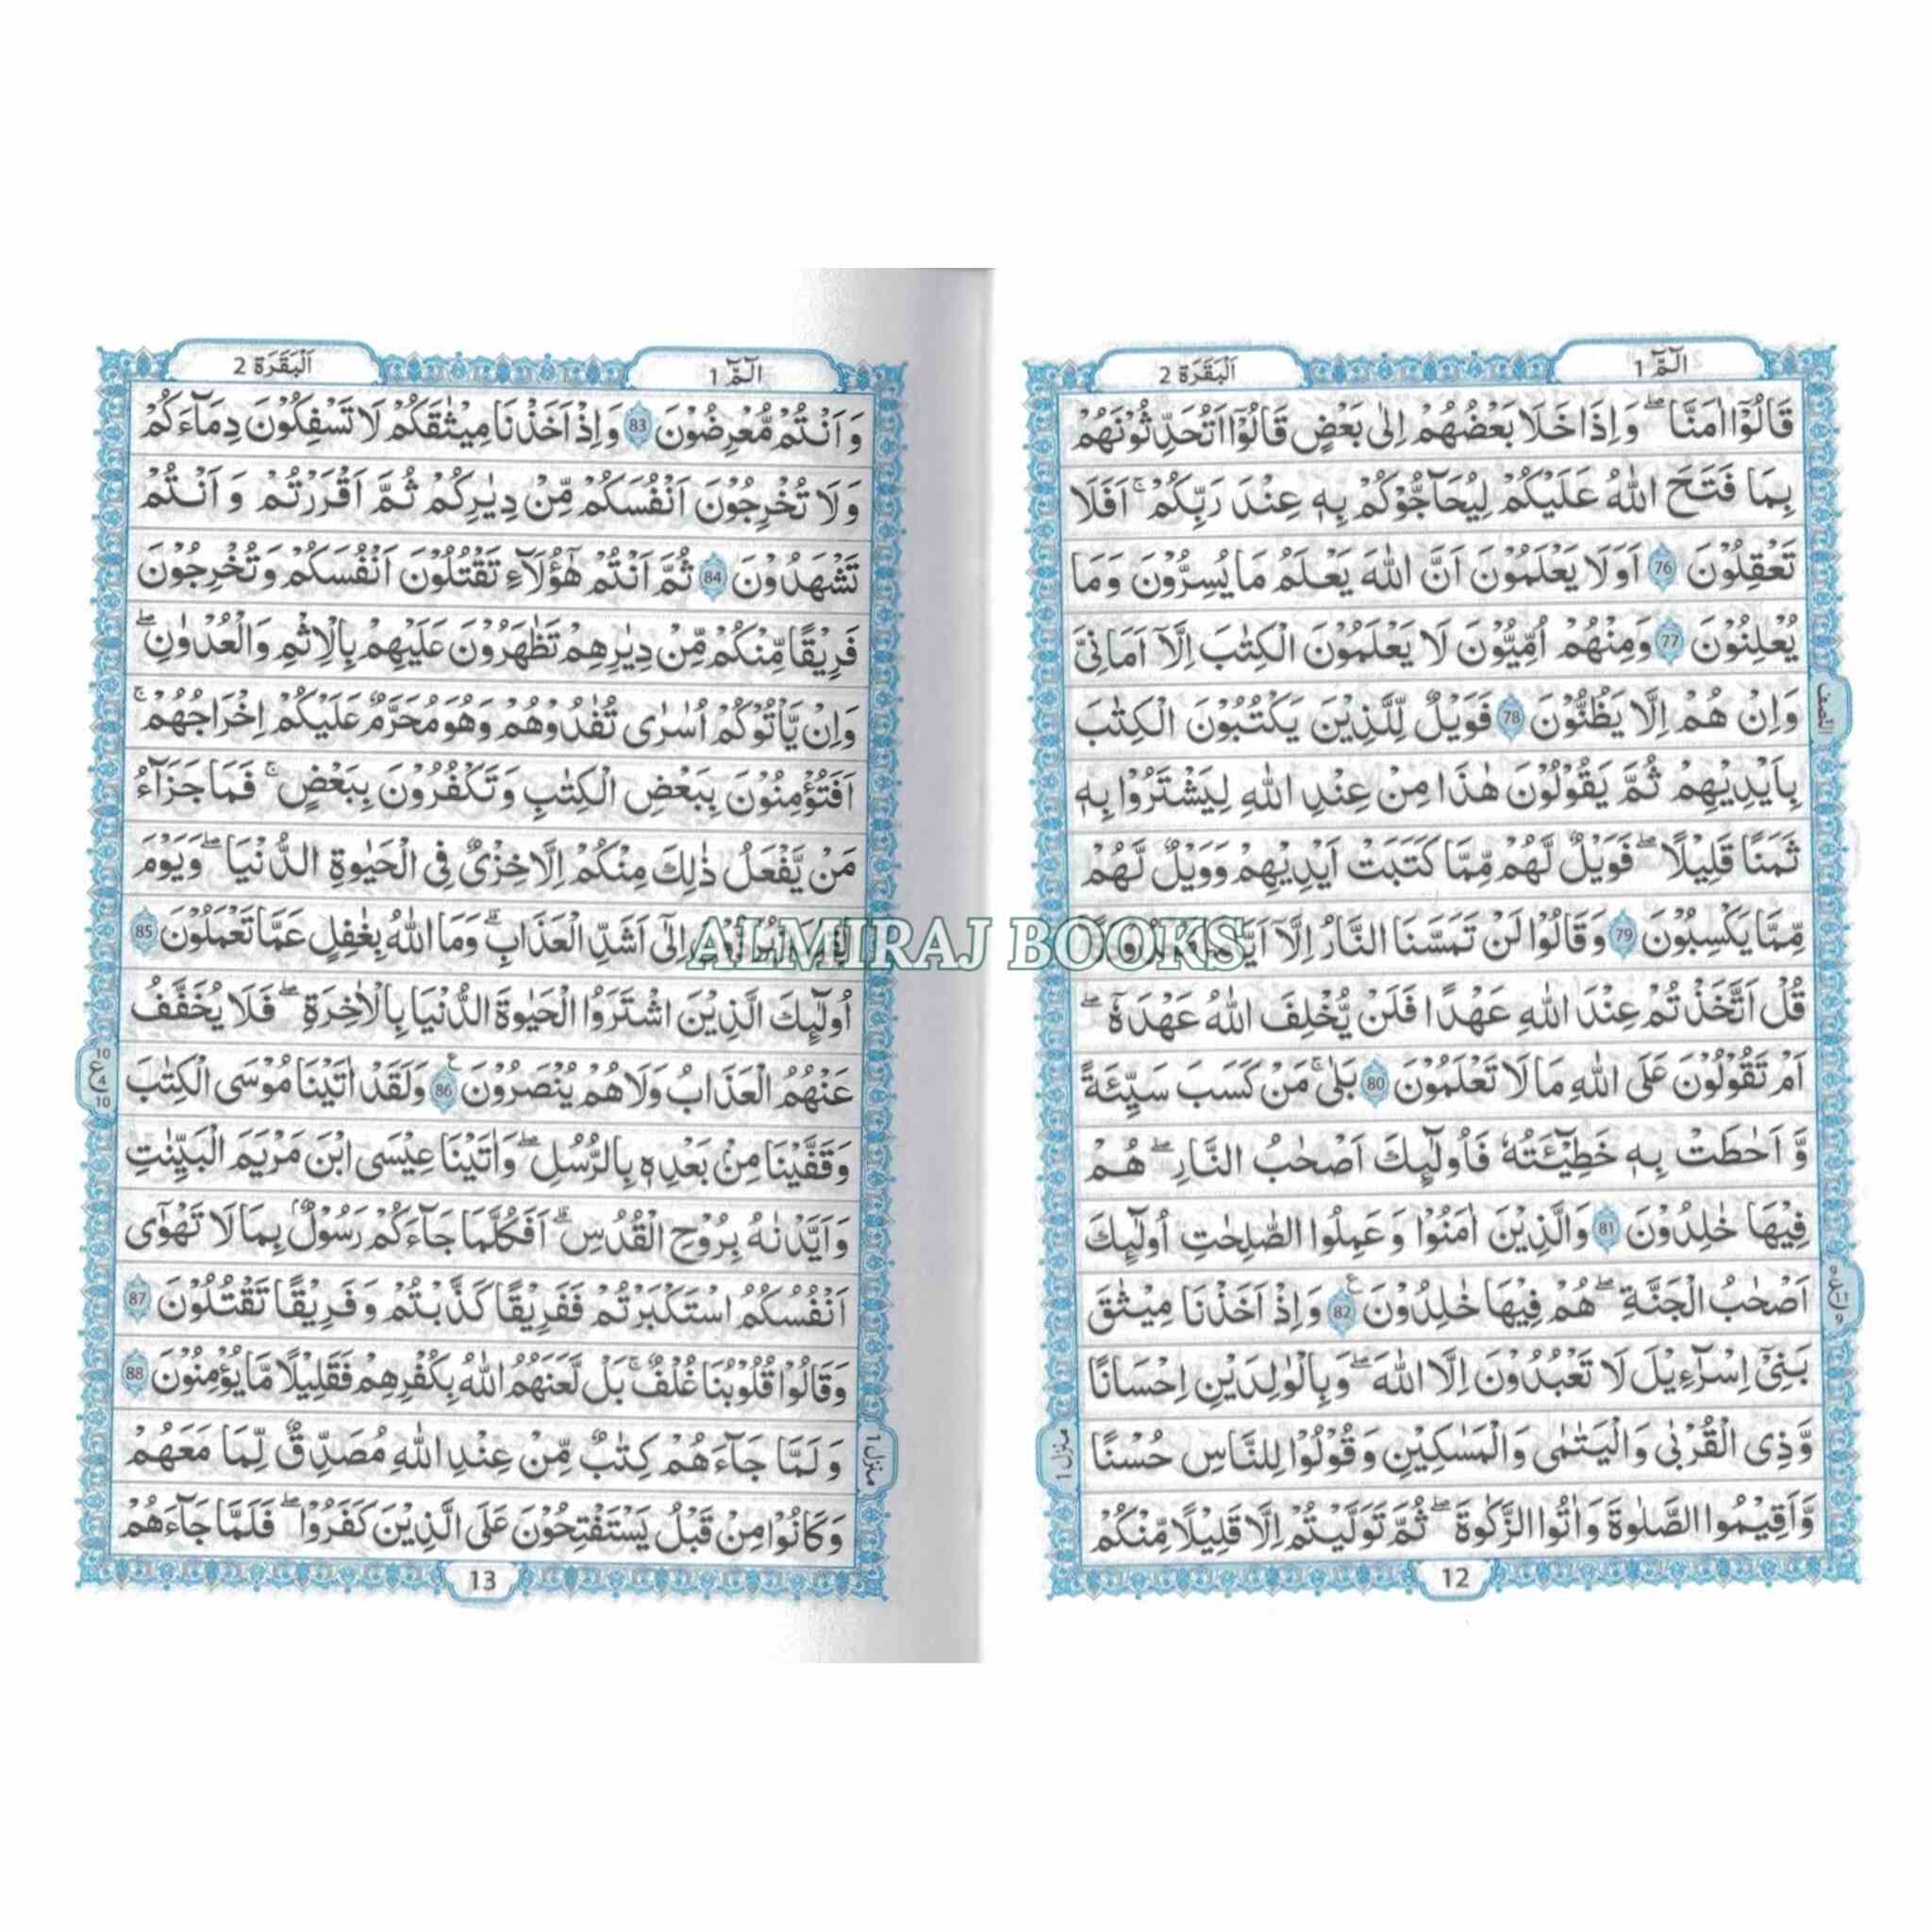 الٓمّٓ 1
اَلْبَقَرَة 2
قَالُوْٓا اٰمَنَّا ۖۚ وَاِذَا خَلَا بَعْضُهُمْ اِلٰى بَعْضٍ قَالُوْٓا اَتُحَدِّثُوْنَهُمْ
بِمَا فَتَحَ اللّٰهُ عَلَيْكُمْ لِيُحَآجُّوْكُمْ بِهٖ عِنْدَ رَبِّكُمْ ۚ اَفَلَا
تَعْقِلُوْنَ 76 اَوَلَا يَعْلَمُوْنَ اَنَّ اللّٰهَ يَعْلَمُ مَا يُسِرُّوْنَ وَمَا
يُعْلِنُوْنَ 77 وَمِنْهُمْ اُمِّيُّوْنَ لَا يَعْلَمُوْنَ الْكِتٰبَ اِلَّآ اَمَانِىَّ
وَاِنْ هُمْ اِلَّا يَظُنُّوْنَ 78 فَوَيْلٌ لِّلَّذِيْنَ يَكْتُبُوْنَ الْكِتٰبَ
بِاَيْدِيْهِمْ ثُمَّ يَقُوْلُوْنَ هٰذَا مِنْ عِنْدِ اللّٰهِ لِيَشْتَرُوْا بِهٖ
ثَمَنًا قَلِيْلًا ۖ فَوَيْلٌ لَّهُمْ مِّمَّا كَتَبَتْ اَيْدِيْهِمْ وَوَيْلٌ لَّهُمْ
مِّمَّا يَكْسِبُوْنَ 79 وَقَالُوْا لَنْ تَمَسَّنَا النَّارُ اِلَّآ
قُلْ اَتَّخَذْتُمْ عِنْدَ اللّٰهِ عَهْدًا فَلَنْ يُّخْلِفَ اللّٰهُ عَهْدَهٗٓ ۖ
اَمْ تَقُوْلُوْنَ عَلَى اللّٰهِ مَا لَا تَعْلَمُوْنَ 80 بَلٰى ۚ مَنْ كَسَبَ سَيِّئَةً
وَّ اَحَاطَتْ بِهٖ خَطِيْٓئَتُهٗ فَاُولٰٓئِكَ اَصْحٰبُ النَّارِ ۖ هُمْ
فِيْهَا خٰلِدُوْنَ 81 وَالَّذِيْنَ اٰمَنُوْا وَعَمِلُوا الصّٰلِحٰتِ اُولٰٓئِكَ
اَصْحٰبُ الْجَنَّةِ ۖ هُمْ فِيْهَا خٰلِدُوْنَ 82 وَاِذْ اَخَذْنَا مِيْثٰقَ
بَنِىْٓ اِسْرَآءِيْلَ لَا تَعْبُدُوْنَ اِلَّا اللّٰهَ ۖ وَبِالْوٰلِدَيْنِ اِحْسَانًا
وَّذِى الْقُرْبٰى وَالْيَتٰمٰى وَالْمَسٰكِيْنِ وَقُوْلُوْا لِلنَّاسِ حُسْنًا
وَّاَقِيْمُوا الصَّلٰوةَ وَاٰتُوا الزَّكٰوةَ ۖ ثُمَّ تَوَلَّيْتُمْ اِلَّا قَلِيْلًا مِّنْكُمْ
النصف
منزل 1
12
الٓمّٓ 1
اَلْبَقَرَة 2
وَاَنْتُمْ مُّعْرِضُوْنَ 83 وَاِذْ اَخَذْنَا مِيْثٰقَكُمْ لَا تَسْفِكُوْنَ دِمَآءَكُمْ
وَلَا تُخْرِجُوْنَ اَنْفُسَكُمْ مِّنْ دِيٰرِكُمْ ثُمَّ اَقْرَرْتُمْ وَاَنْتُمْ
تَشْهَدُوْنَ 84 ثُمَّ اَنْتُمْ هٰٓؤُلَآءِ تَقْتُلُوْنَ اَنْفُسَكُمْ وَتُخْرِجُوْنَ
فَرِيْقًا مِّنْكُمْ مِّنْ دِيٰرِهِمْ تَظٰهَرُوْنَ عَلَيْهِمْ بِالْاِثْمِ وَالْعُدْوٰنِ ۖ
وَاِنْ يَّاْتُوْكُمْ اُسٰرٰى تُفٰدُوْهُمْ وَهُوَ مُحَرَّمٌ عَلَيْكُمْ اِخْرَاجُهُمْ ۚ
اَفَتُؤْمِنُوْنَ بِبَعْضِ الْكِتٰبِ وَتَكْفُرُوْنَ بِبَعْضٍ ۚ فَمَا جَزَآءُ
مَنْ يَّفْعَلُ ذٰلِكَ مِنْكُمْ اِلَّا خِزْىٌ فِى الْحَيٰوةِ الدُّنْيَا ۖ وَيَوْمَ
اِلٰٓى اَشَدِّ الْعَذَابِ ۗ وَمَا اللّٰهُ بِغٰفِلٍ عَمَّا تَعْمَلُوْنَ 85
اُولٰٓئِكَ الَّذِيْنَ اشْتَرَوُا الْحَيٰوةَ الدُّنْيَا بِالْاٰخِرَةِ ۖ فَلَا يُخَفَّفُ
عَنْهُمُ الْعَذَابُ وَلَا هُمْ يُنْصَرُوْنَ 86 وَلَقَدْ اٰتَيْنَا مُوْسَى الْكِتٰبَ
وَقَفَّيْنَا مِنْۢ بَعْدِهٖ بِالرُّسُلِ ۖ وَاٰتَيْنَا عِيْسَى ابْنَ مَرْيَمَ الْبَيِّنٰتِ
وَاَيَّدْنٰهُ بِرُوْحِ الْقُدُسِ ۗ اَفَكُلَّمَا جَآءَكُمْ رَسُوْلٌۢ بِمَا لَا تَهْوٰٓى
اَنْفُسُكُمُ اسْتَكْبَرْتُمْ فَفَرِيْقًا كَذَّبْتُمْ وَفَرِيْقًا تَقْتُلُوْنَ 87
وَقَالُوْا قُلُوْبُنَا غُلْفٌ ۚ بَلْ لَّعَنَهُمُ اللّٰهُ بِكُفْرِهِمْ فَقَلِيْلًا مَّا يُؤْمِنُوْنَ 88
وَلَمَّا جَآءَهُمْ كِتٰبٌ مِّنْ عِنْدِ اللّٰهِ مُصَدِّقٌ لِّمَا مَعَهُمْ
وَكَانُوْا مِنْ قَبْلُ يَسْتَفْتِحُوْنَ عَلَى الَّذِيْنَ كَفَرُوْا ۖ فَلَمَّا جَآءَهُمْ
10
ع 4
10
منزل 1
13
ALMIRAJ BOOKS